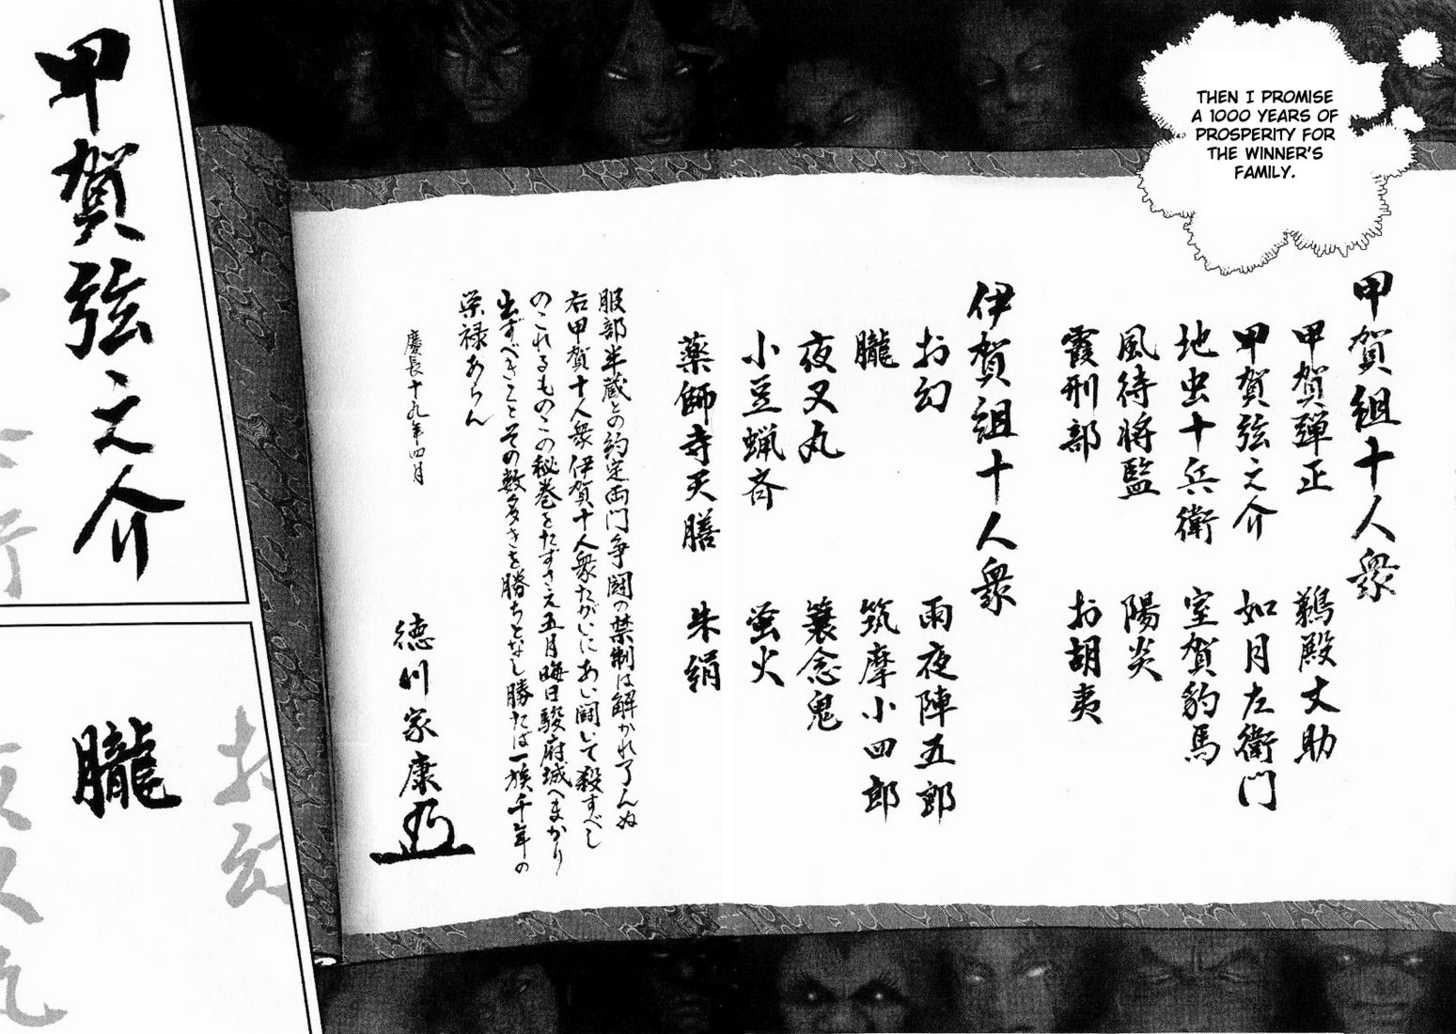 THEN I PROMISE
A 1000 YEARS OF
PROSPERITY FOR
THE WINNER'S
FAMILY.
甲賀組十人衆
甲賀弾正 鵜殿丈助
甲賀弦之介 如月左衛門
地虫十兵衛 室賀豹馬
風待将監 陽炎
霞刑部 お胡夷
伊賀組十人衆
お幻 雨夜陣五郎
朧 筑摩小四郎
夜叉丸 蓑念鬼
小豆蝋斉 蛍火
薬師寺天膳 朱絹
服部半蔵との約定両門争闘の禁制は解かれ了んぬ
右甲賀十人衆伊賀十人衆たがいにあい闘いて殺すべし
のこれるものこの秘巻をたずさえ五月晦日駿府城へまかり
出ずべきことその数多きを勝ちとなし勝たば一族千年の
栄禄あらん
慶長十九年四月
徳川家康
甲賀弦之介
お幻
朧